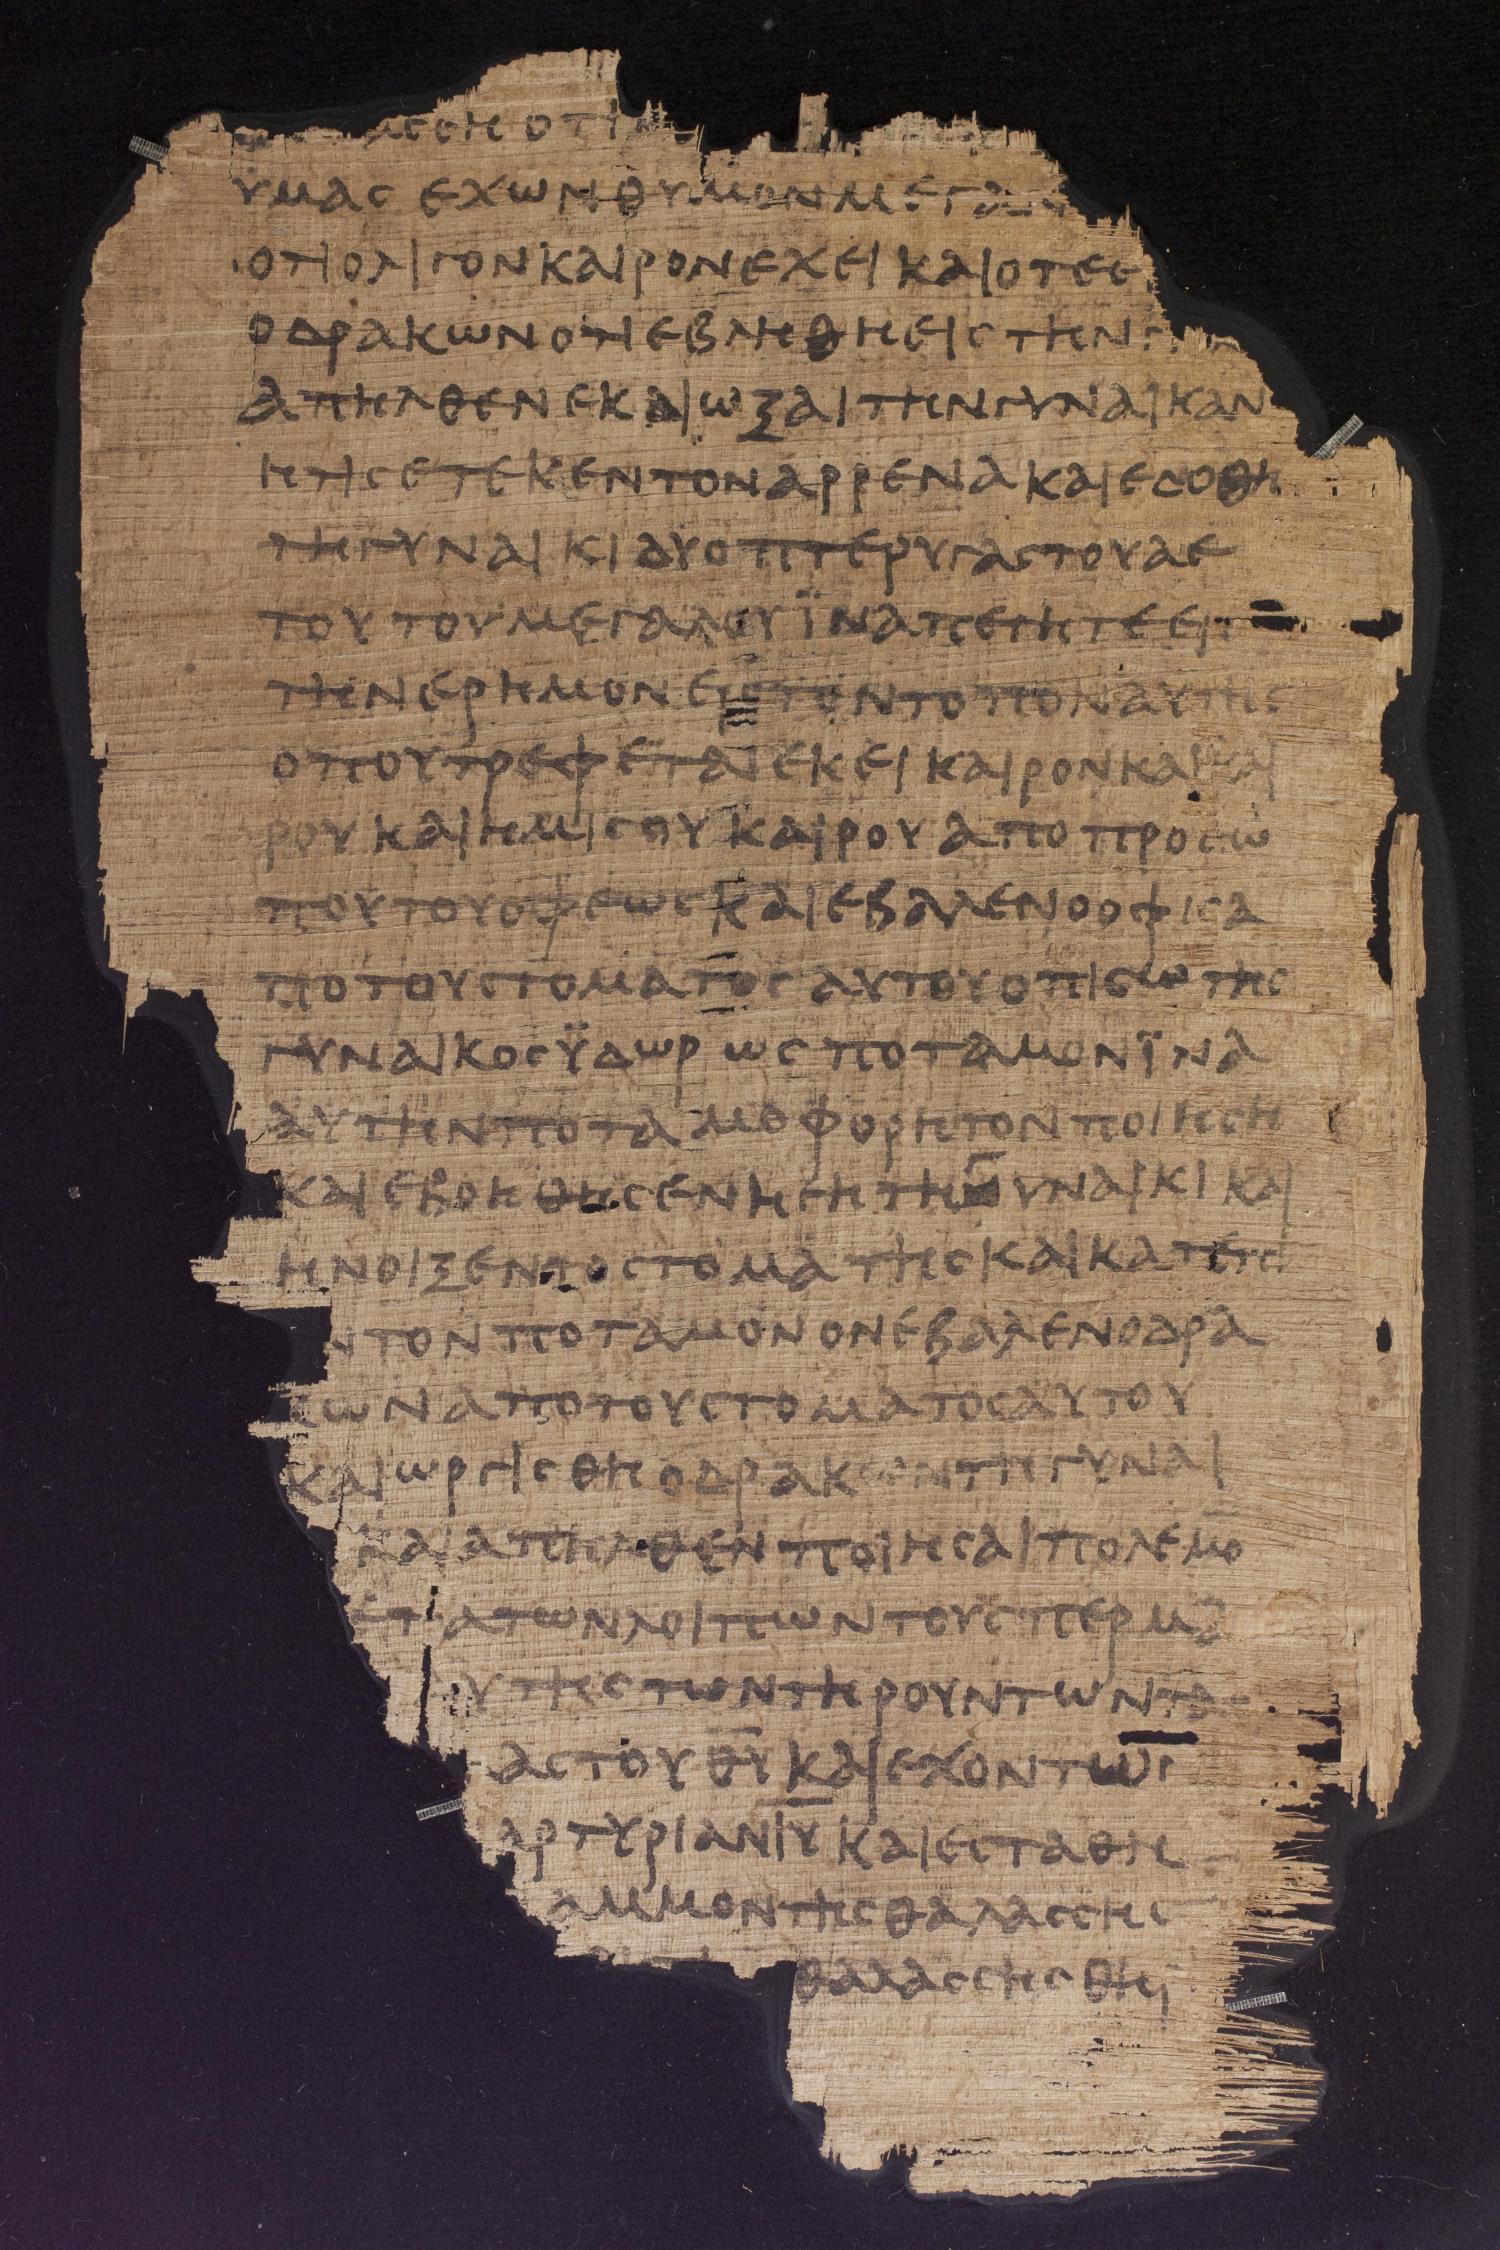 ΑϹϹΗ ΟΤΙ
ΥΜΑϹ ΕΧΩΝ ΘΥΜΟΝ ΜΕΓΑ
ΟΤΙ ΟΛΙΓΟΝ ΚΑΙΡΟΝ ΕΧΕΙ ΚΑΙ ΟΤΕ Ε
Ο ΔΡΑΚΩΝ ΟΤΙ ΕΒΛΗΘΗ ΕΙϹ ΤΗΝ
ΑΠΗΛΘΕΝ ΕΚΔΙΩΞΑΙ ΤΗΝ ΓΥΝΑΙΚΑΝ
ΗΤΙϹ ΕΤΕΚΕΝ ΤΟΝ ΑΡΡΕΝΑ ΚΑΙ ΕϹΟΘΗ
ΤΗ ΓΥΝΑΙΚΙ ΔΥΟ ΠΤΕΡΥΓΑϹ ΤΟΥ ΑΕ
ΤΟΥ ΤΟΥ ΜΕΓΑΛΟΥ ΪΝΑ ΠΕΤΗΤΕ ΕΙϹ
ΤΗΝ ΕΡΗΜΟΝ ΕΙϹ ΤΟΝ ΤΟΠΟΝ ΑΥΤΗϹ
ΟΠΟΥ ΤΡΕΦΕΤΑΙ ΕΚΕΙ ΚΑΙΡΟΝ ΚΑΙ ΚΑΙ
ΡΟΥ ΚΑΙ ΗΜΙϹΟΥ ΚΑΙΡΟΥ ΑΠΟ ΠΡΟϹΩ
ΠΟΥ ΤΟΥ ΟΦΕΩϹ ΚΑΙ ΕΒΑΛΕΝ Ο ΟΦΙϹ Α
ΠΟ ΤΟΥ ϹΤΟΜΑΤΟϹ ΑΥΤΟΥ ΟΠΙϹΩ ΤΗϹ
ΓΥΝΑΙΚΟϹ ΫΔΩΡ ΩϹ ΠΟΤΑΜΟΝ ΪΝΑ
ΑΥΤΗΝ ΠΟΤΑΜΟΦΟΡΗΤΟΝ ΠΟΙΗϹΗ
ΚΑΙ ΕΒΟΗΘΗϹΕΝ Η ΓΗ ΤΗ ΓΥΝΑΙΚΙ ΚΑΙ
ΗΝΟΙΞΕΝ ΤΟ ϹΤΟΜΑ ΤΗϹ ΚΑΙ ΚΑΤΕΠΕ
Ν ΤΟΝ ΠΟΤΑΜΟΝ ΟΝ ΕΒΑΛΕΝ Ο ΔΡΑ
ΚΩΝ ΑΠΟ ΤΟΥ ϹΤΟΜΑΤΟϹ ΑΥΤΟΥ
ΚΑΙ ΩΡΓΙϹΘΗ Ο ΔΡΑΚΩΝ ΤΗ ΓΥΝΑΙ
ΚΑΙ ΑΠΗΛΘΕΝ ΠΟΙΗϹΑΙ ΠΟΛΕΜΟ
ΕΤΑ ΤΩΝ ΛΟΙΠΩΝ ΤΟΥ ϹΠΕΡΜΑ
ΥΤΗϹ ΤΩΝ ΤΗΡΟΥΝΤΩΝ ΤΑ
ΑϹ ΤΟΥ Θ̅Υ̅ ΚΑΙ ΕΧΟΝΤΩΝ
ΑΡΤΥΡΙΑΝ Ι̅Υ̅ ΚΑΙ ΕϹΤΑΘΗ
ΑΜΜΟΝ ΤΗϹ ΘΑΛΑϹϹΗϹ
ΘΑΛΑϹϹΗϹ ΘΗΡ